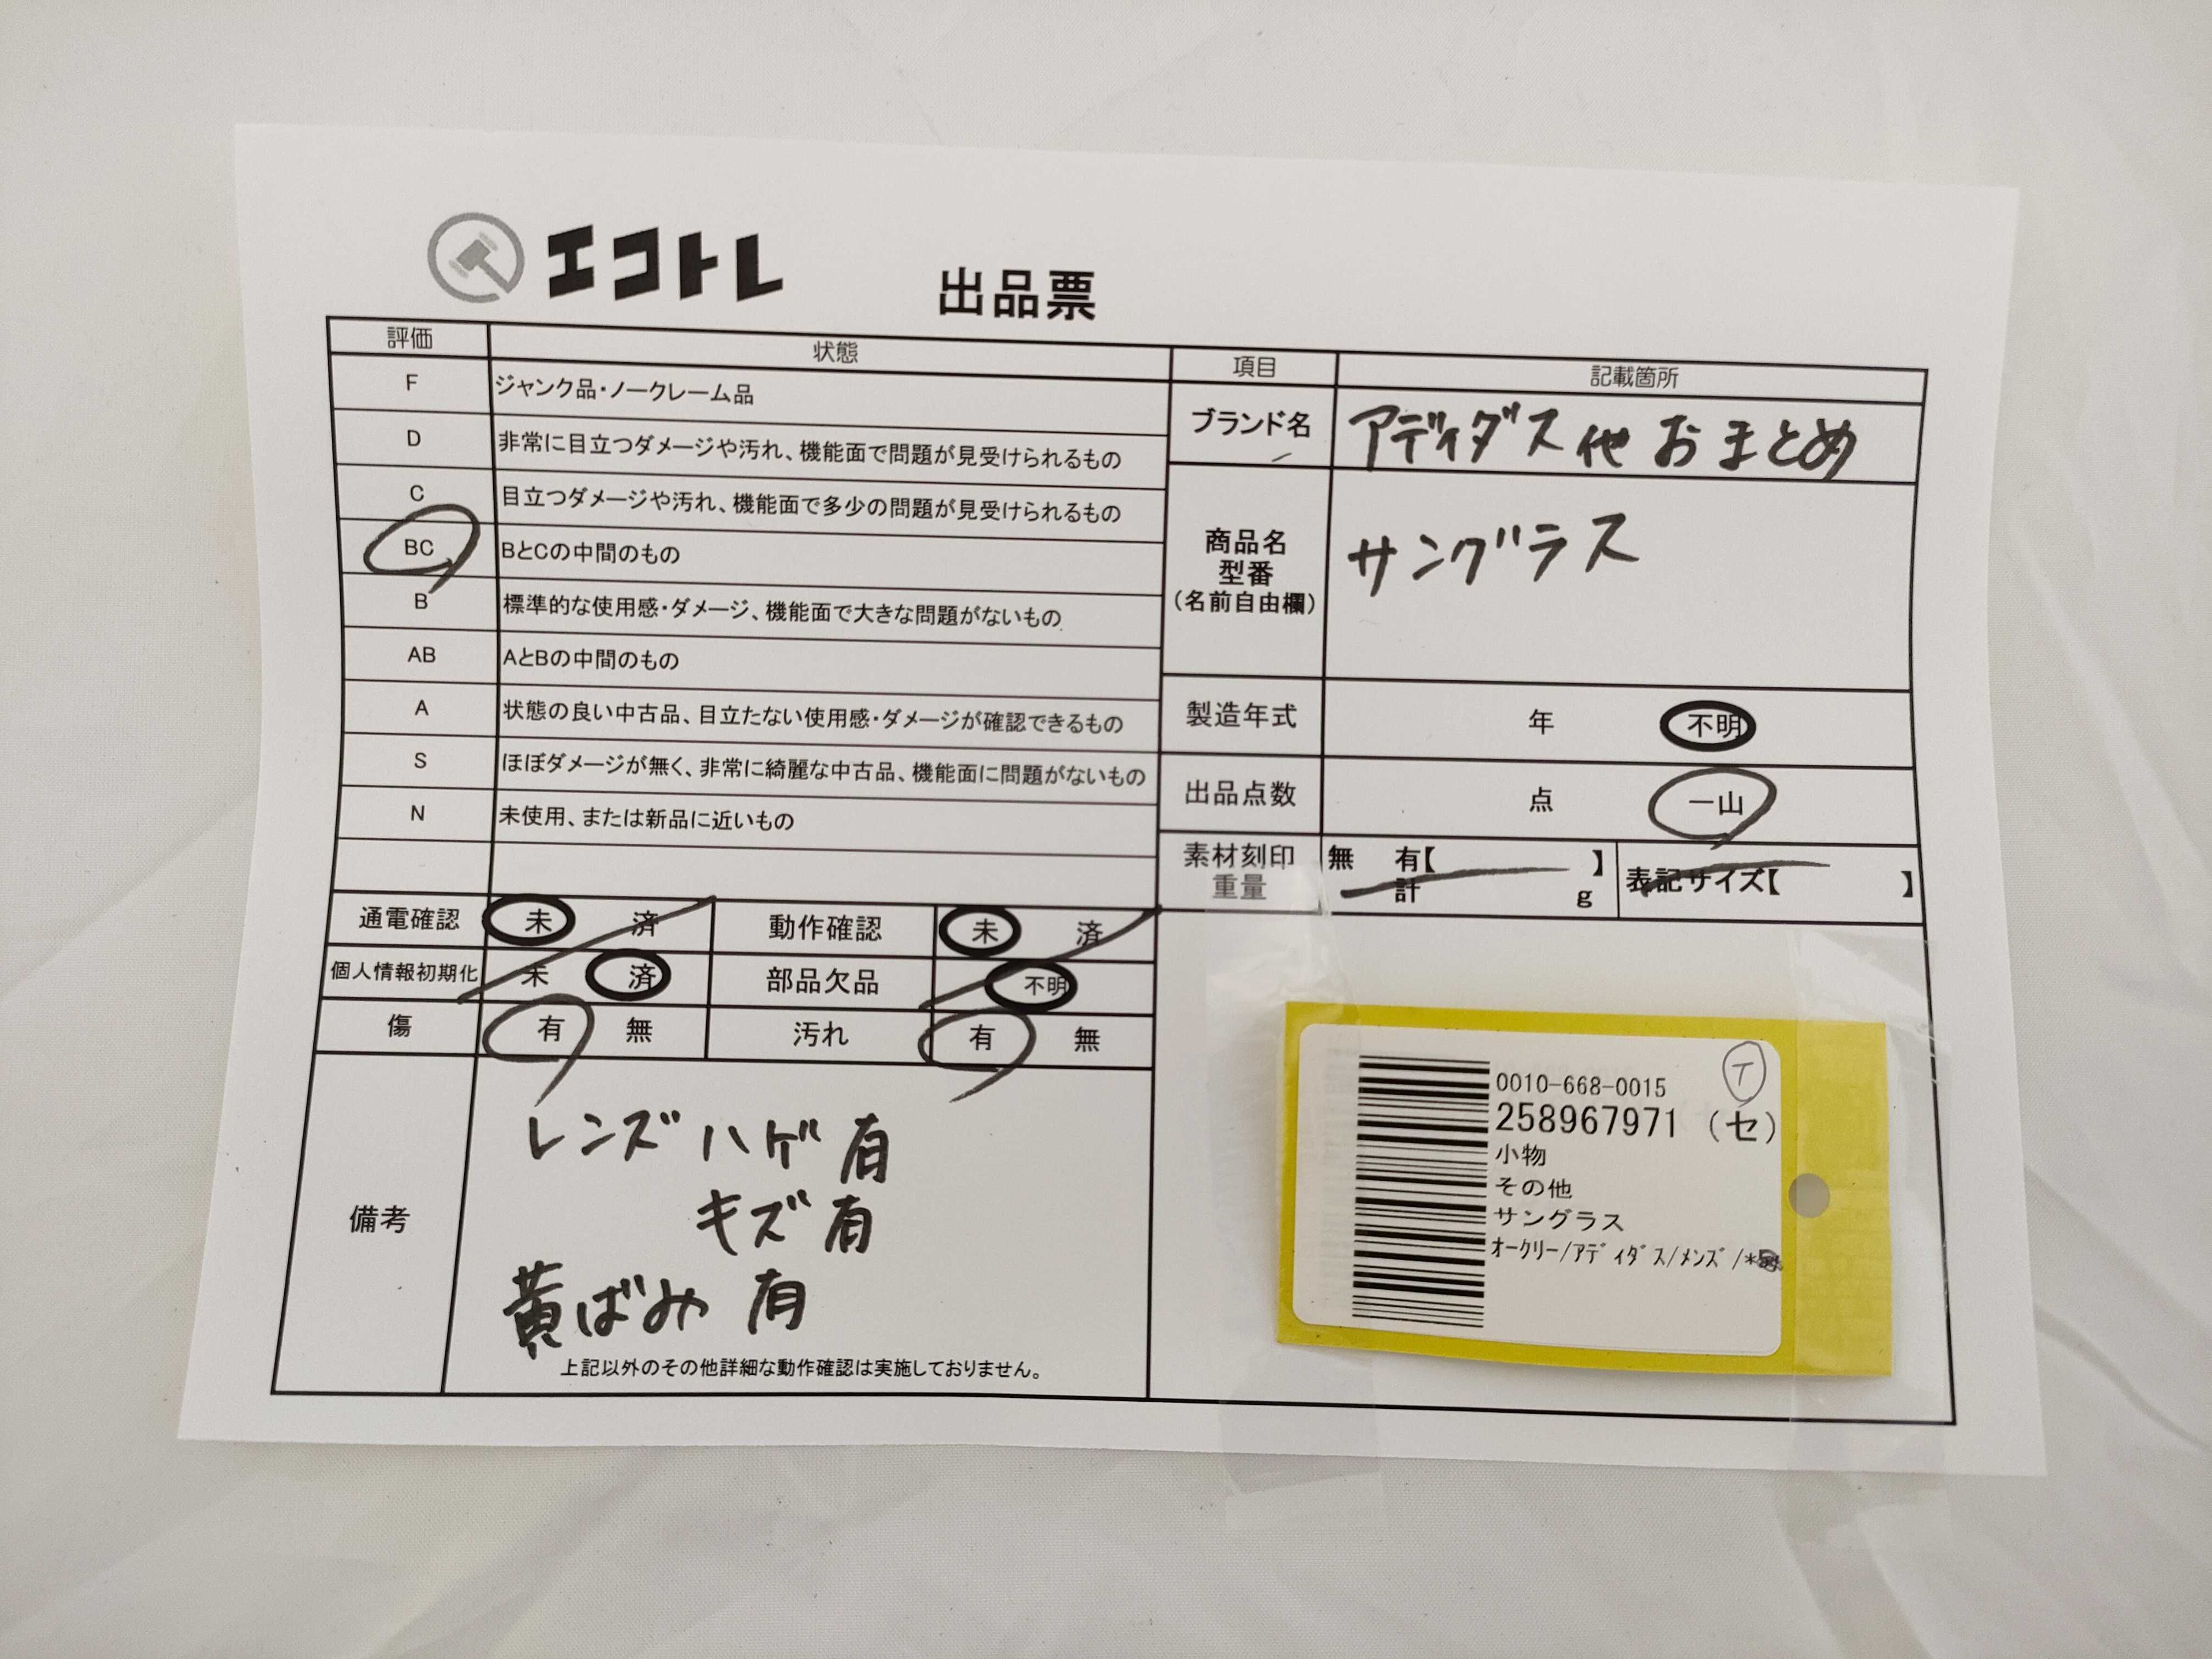 エコトレ
出品票
評価 状態
F ジャンク品・ノークレーム品
D 非常に目立つダメージや汚れ、機能面で問題が見受けられるもの
C 目立つダメージや汚れ、機能面で多少の問題が見受けられるもの
BC BとCの中間のもの
B 標準的な使用感・ダメージ、機能面で大きな問題がないもの
AB AとBの中間のもの
A 状態の良い中古品、目立たない使用感・ダメージが確認できるもの
S ほぼダメージが無く、非常に綺麗な中古品、機能面に問題がないもの
N 未使用、または新品に近いもの
項目 記載箇所
ブランド名 アディダス他 おまとめ
商品名
型番
(名前自由欄)
サングラス
製造年式 年 不明
出品点数 点 一山
素材刻印 無 有【 】 表記サイズ【 】
重量 計 g
通電確認 未 済 動作確認 未 済
個人情報初期化 未 済 部品欠品 不明
傷 有 無 汚れ 有 無
備考
レンズ ハゲ 有
キズ 有
黄ばみ 有
上記以外のその他詳細な動作確認は実施しておりません。
T
0010-668-0015
258967971 (セ)
小物
その他
サングラス
オークリー/アディダス/メンズ/*